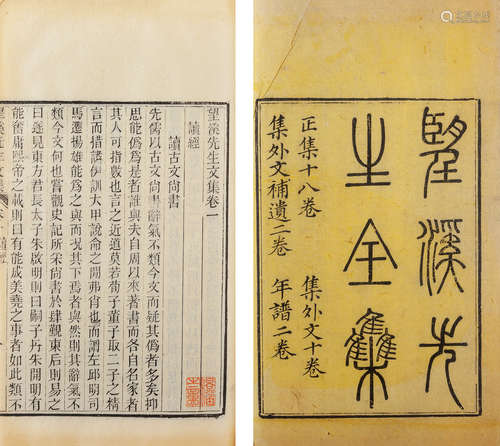 望溪先
生全集
正集十八卷 集外文十卷
集外文補遺二卷 年譜二卷
望溪先生文集卷一
讀經
讀古文尚書
先儒以古文尚書辭氣不類今文而疑其偽者多矣抑
思能偽為是者誰與夫自周以來著書而各自名家者
其人可指數也言之近道莫若荀子董子取二子之精
言而措諸伊訓大甲說命之閒弗肖也而謂左邱明司
馬遷揚雄能為之與而況其下焉者與然則其辭氣不
類今文何也嘗觀史記所采尚書於肆覲東后則易之
曰遂見東方君長太子朱啟明則曰嗣子丹朱開明有
能奮庸熙帝之載則曰有能成美堯之事者如此類不
望溪先生文集